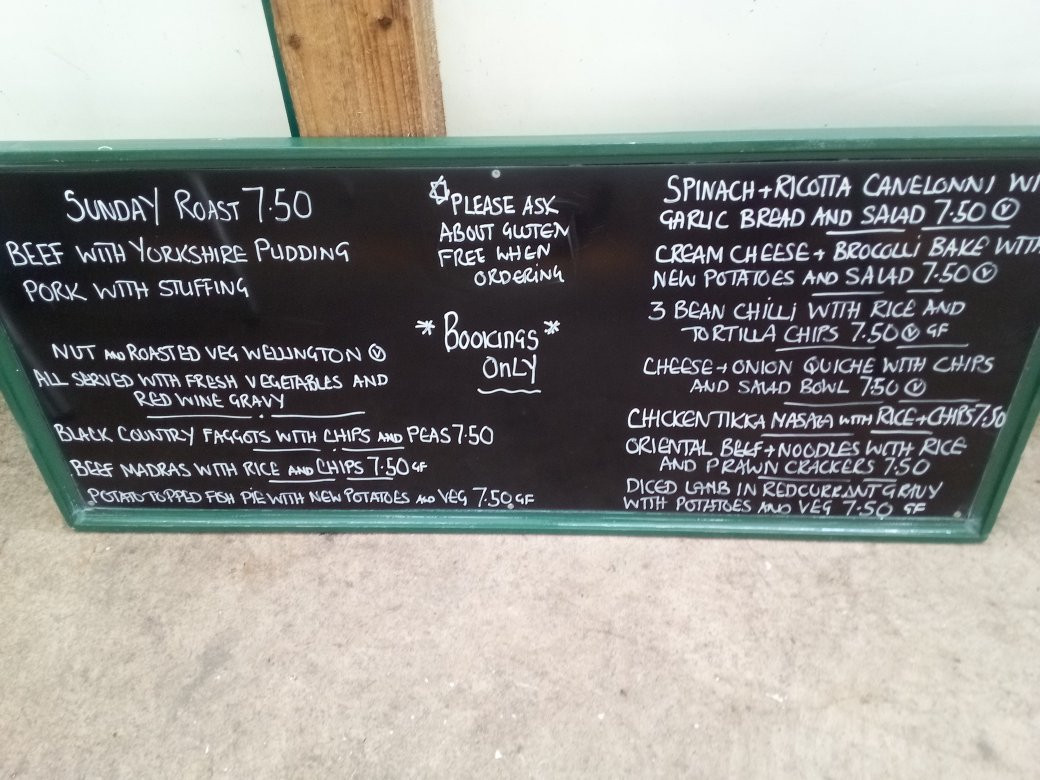 SUNDAY ROAST 7.50
BEEF WITH YORKSHIRE PUDDING
PORK WITH STUFFING
NUT AND ROASTED VEG WELLINGTON Ⓥ
ALL SERVED WITH FRESH VEGETABLES AND
RED WINE GRAVY
BLACK COUNTRY FAGGOTS WITH CHIPS AND PEAS 7.50
BEEF MADRAS WITH RICE AND CHIPS 7.50 GF
POTATO TOPPED FISH PIE WITH NEW POTATOES AND VEG 7.50 GF
PLEASE ASK
ABOUT GLUTEN
FREE WHEN
ORDERING
* BOOKINGS *
ONLY
SPINACH + RICOTTA CANELONNI WI
GARLIC BREAD AND SALAD 7.50 Ⓥ
CREAM CHEESE + BROCOLLI BAKE WITH
NEW POTATOES AND SALAD 7.50 Ⓥ
3 BEAN CHILLI WITH RICE AND
TORTILLA CHIPS 7.50 Ⓥ GF
CHEESE + ONION QUICHE WITH CHIPS
AND SALAD BOWL 7.50 Ⓥ
CHICKEN TIKKA MASALA WITH RICE + CHIPS 7.50
ORIENTAL BEEF + NOODLES WITH RICE
AND PRAWN CRACKERS 7.50
DICED LAMB IN REDCURRANT GRAVY
WITH POTATOES AND VEG 7.50 GF